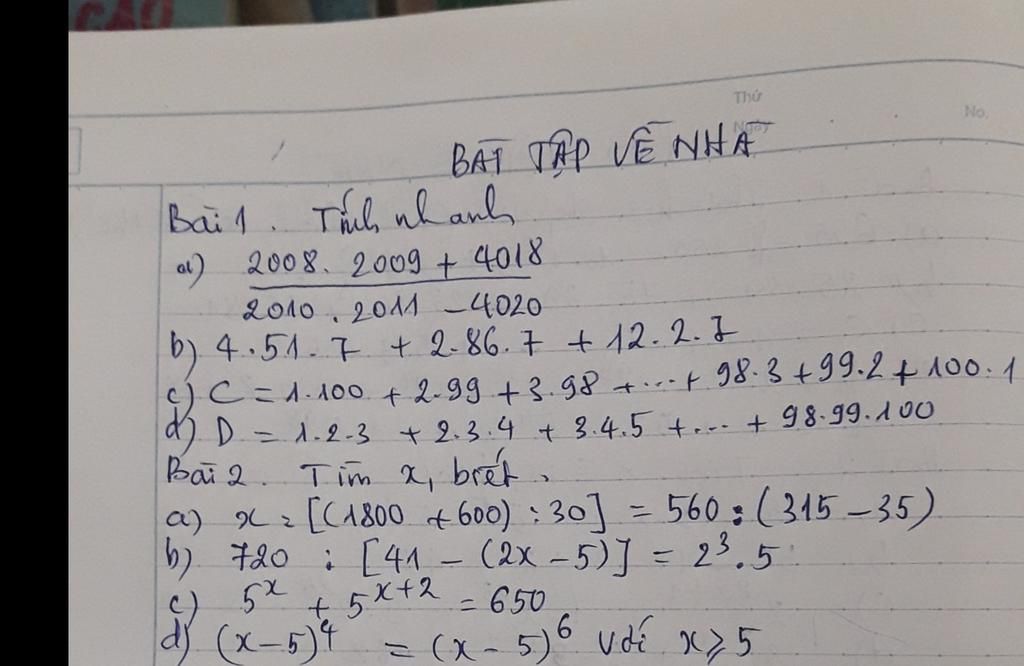 CAO
Thứ
No.
Ngày
BÀI TẬP VỀ NHÀ
Bài 1. Tính nhanh
a) 2008. 2009 + 4018
2010 . 2011 - 4020
b) 4.51.7 + 2.86.7 + 12.2.7
c) C = 1.100 + 2.99 + 3.98 + ... + 98.3 + 99.2 + 100.1
d) D = 1.2.3 + 2.3.4 + 3.4.5 + ... + 98.99.100
Bài 2. Tìm x, biết.
a) x : [(1800 + 600) : 30] = 560 : (315 - 35)
b) 720 : [41 - (2x - 5)] = 2³.5
c) 5ˣ + 5ˣ⁺² = 650
d) (x - 5)⁴ = (x - 5)⁶ với x ⩾ 5